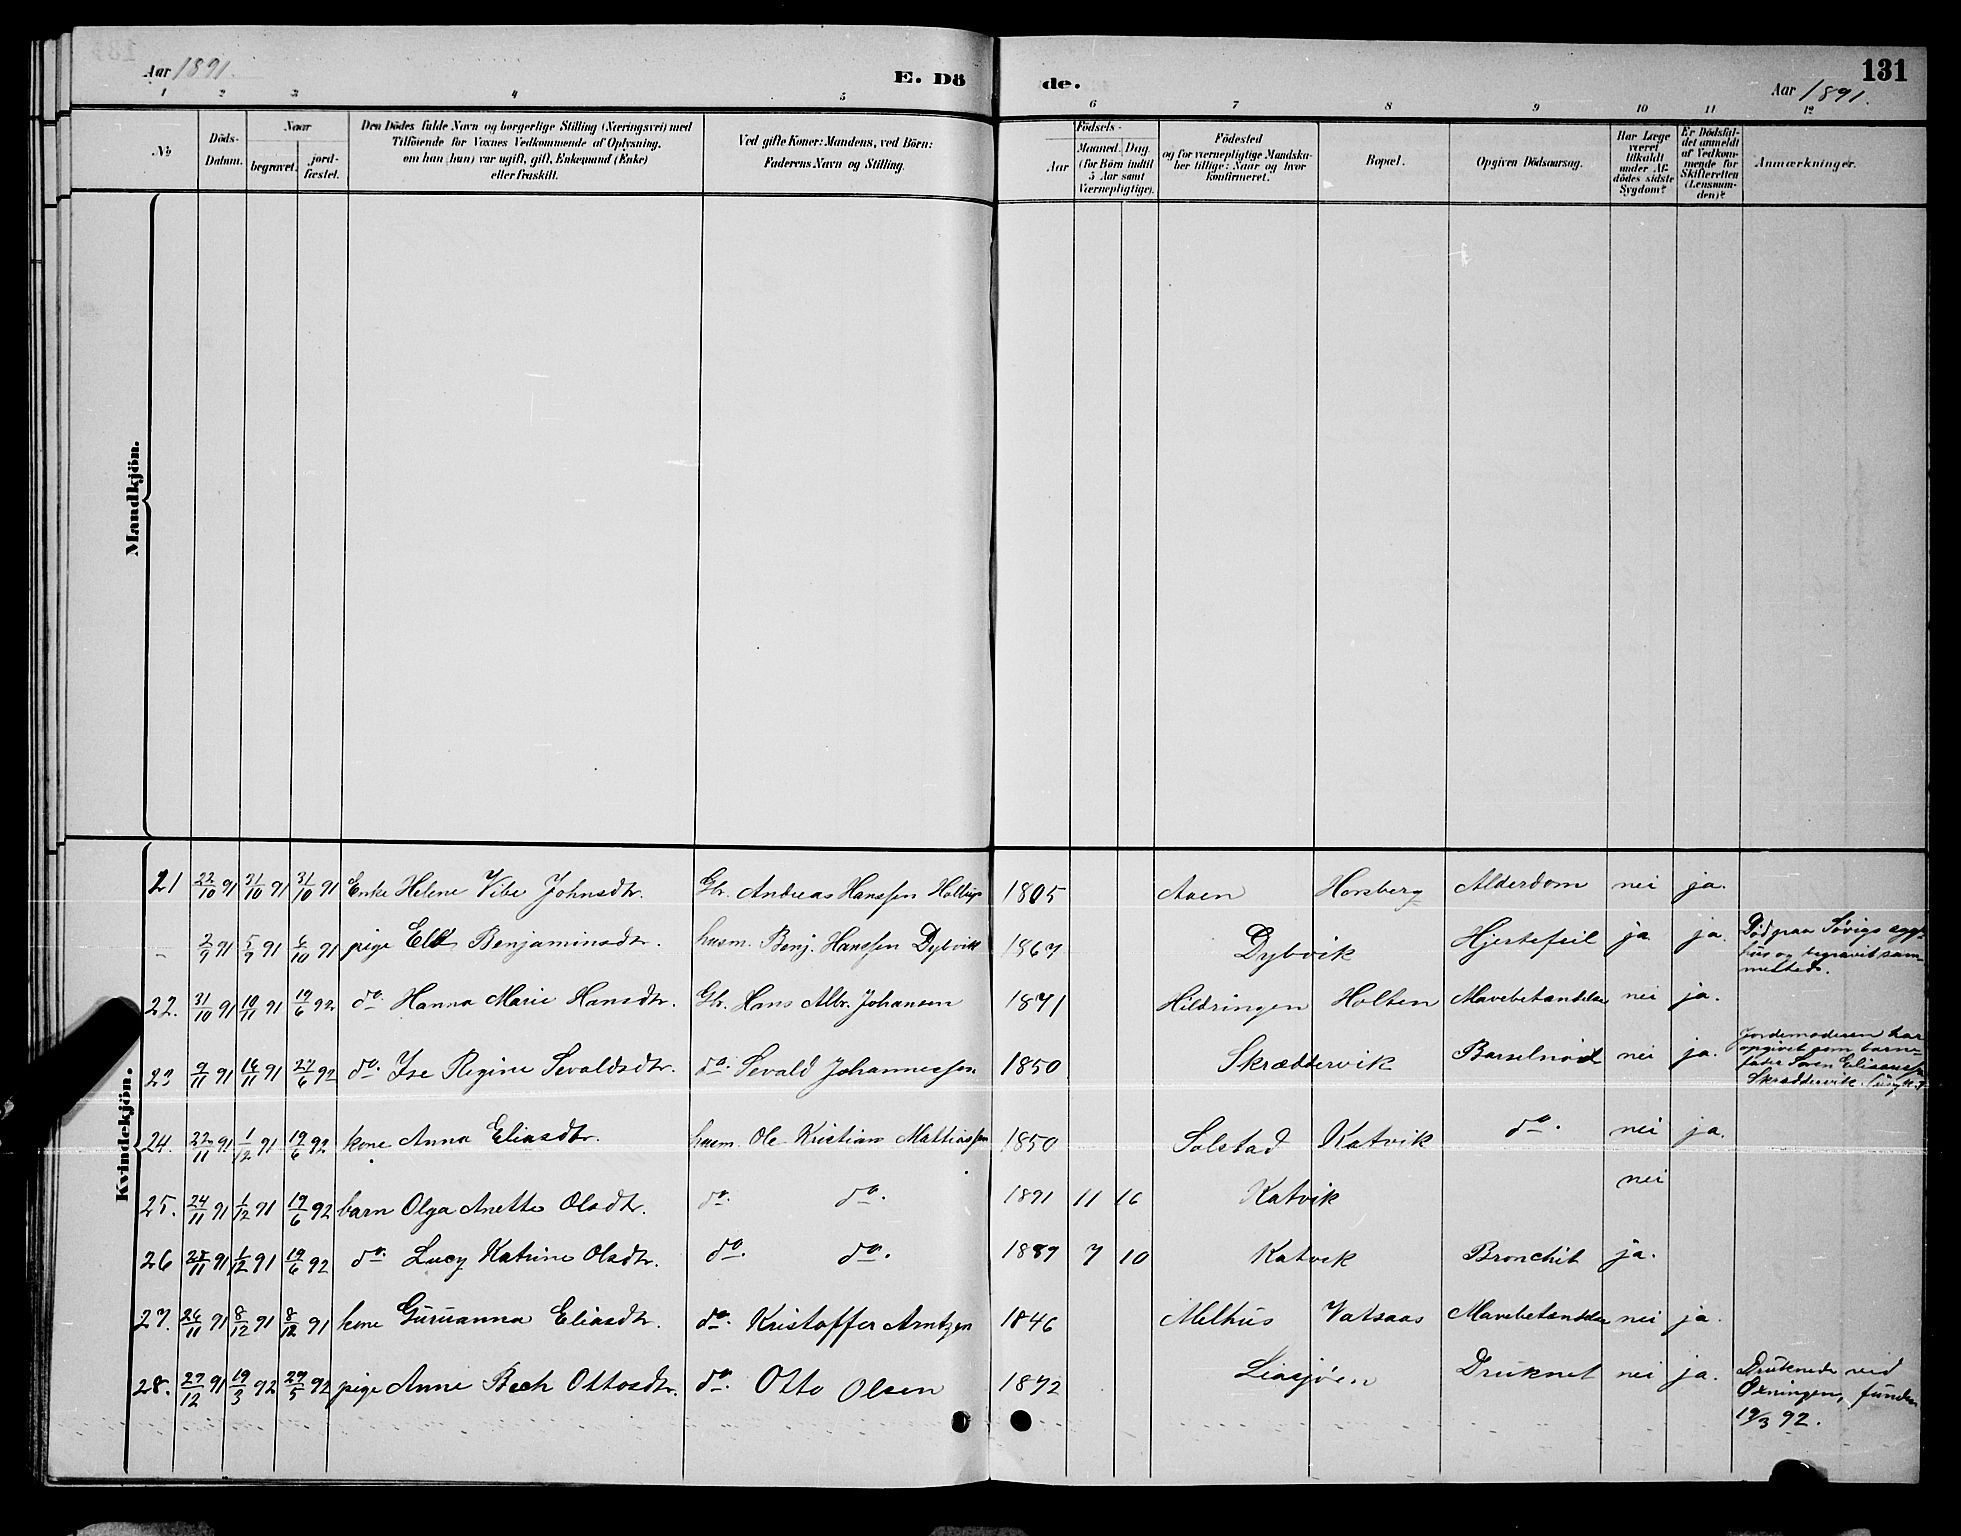 Aar 1891.
E. Dö
de.
Aar 1891.
131
1 2 3 4 5
6 7 8 9 10 11 12
No
Döds-
Datum.
Naar
begravet.
jord-
fæstet.
Den Dödes fulde Navn og borgerlige Stilling (Næringsvei) med
Tilföiende for Voxnes Vedkommende af Oplysning,
om han (hun) var ugift, gift, Enkemand (Enke)
eller fraskilt.
Ved gifte Koner: Mandens, ved Börn:
Faderens Navn og Stilling.
Födsels-
Aar
Maaned. Dag.
(for Börn indtil
5 Aar samt
Værnepligtige).
Födested
og for værnepligtige Mandska-
ber tillige: Naar og hvor
konfirmeret.
Bopæl.
Opgiven Dödsaarsag.
Har Læge
været
tilkaldt
under Af-
dödes sidste
Sygdom?
Er Dödsfal-
det anmeldt
af Vedkom-
mende for
Skifteretten
(Lensman-
den)?
Anmærkninger.
Mandkjön.
Kvindekjön.
21 22/10 91 31/10 91 31/10 91 Enke Helene Vibe Johnsdtr. Gbr. Andreas Hanssen 1805 Aaen Horsberg Alderdom nei ja.
- 2/9 91 5/9 91 4/10 91 pige Benjaminsdtr. husm. Benj. Hanssen Dybvik 1867 Dybvik Hjertefeil ja ja. Död paa Søvigs syge-
hus og begravet sam-
mesteds.
22. 31/10 91 10/11 91 19/6 92 do. Hanna Marie Hansdtr. Gbr. Hans Albr. Johansen 1871 Hildringen Holten Mavebetændelse nei ja.
23 9/11 91 16/11 91 27/6 92 do. Ise Regine Sevaldsdtr. do. Sevald Johannessen 1850 Skræddervik Barselnød nei ja. Jordemoderen har
opgivet som barne-
fader Søren Eliassen
Skræddervik.
24. 22/11 91 1/12 91 19/6 92 kone Anna Eliasdtr. husm. Ole Kristian Mathiassen 1850 Solstad Katvik do. nei ja.
25. 24/11 91 1/12 91 19/6 92 barn Olga Anette Olsdtr. do. do. 1891 11 16 Katvik nei
26 25/11 91 1/12 91 19/6 92 do. Lucy Katrine Olsdtr. do. do. 1889 7 10 Katvik Bronchit ja.
27. 26/11 91 8/12 91 8/12 91 kone Guruanna Eliasdtr. do. Kristoffer Arntzen 1846 Melhus Vatsaas Mavebetændelse nei ja.
28. 27/12 91 19/3 92 29/5 92 pige Anne Bech Ottosdtr. do. Otto Olsen 1872 Liasjøen Druknet nei ja. Druknede ved
Øxningen, funden
19/3 92.